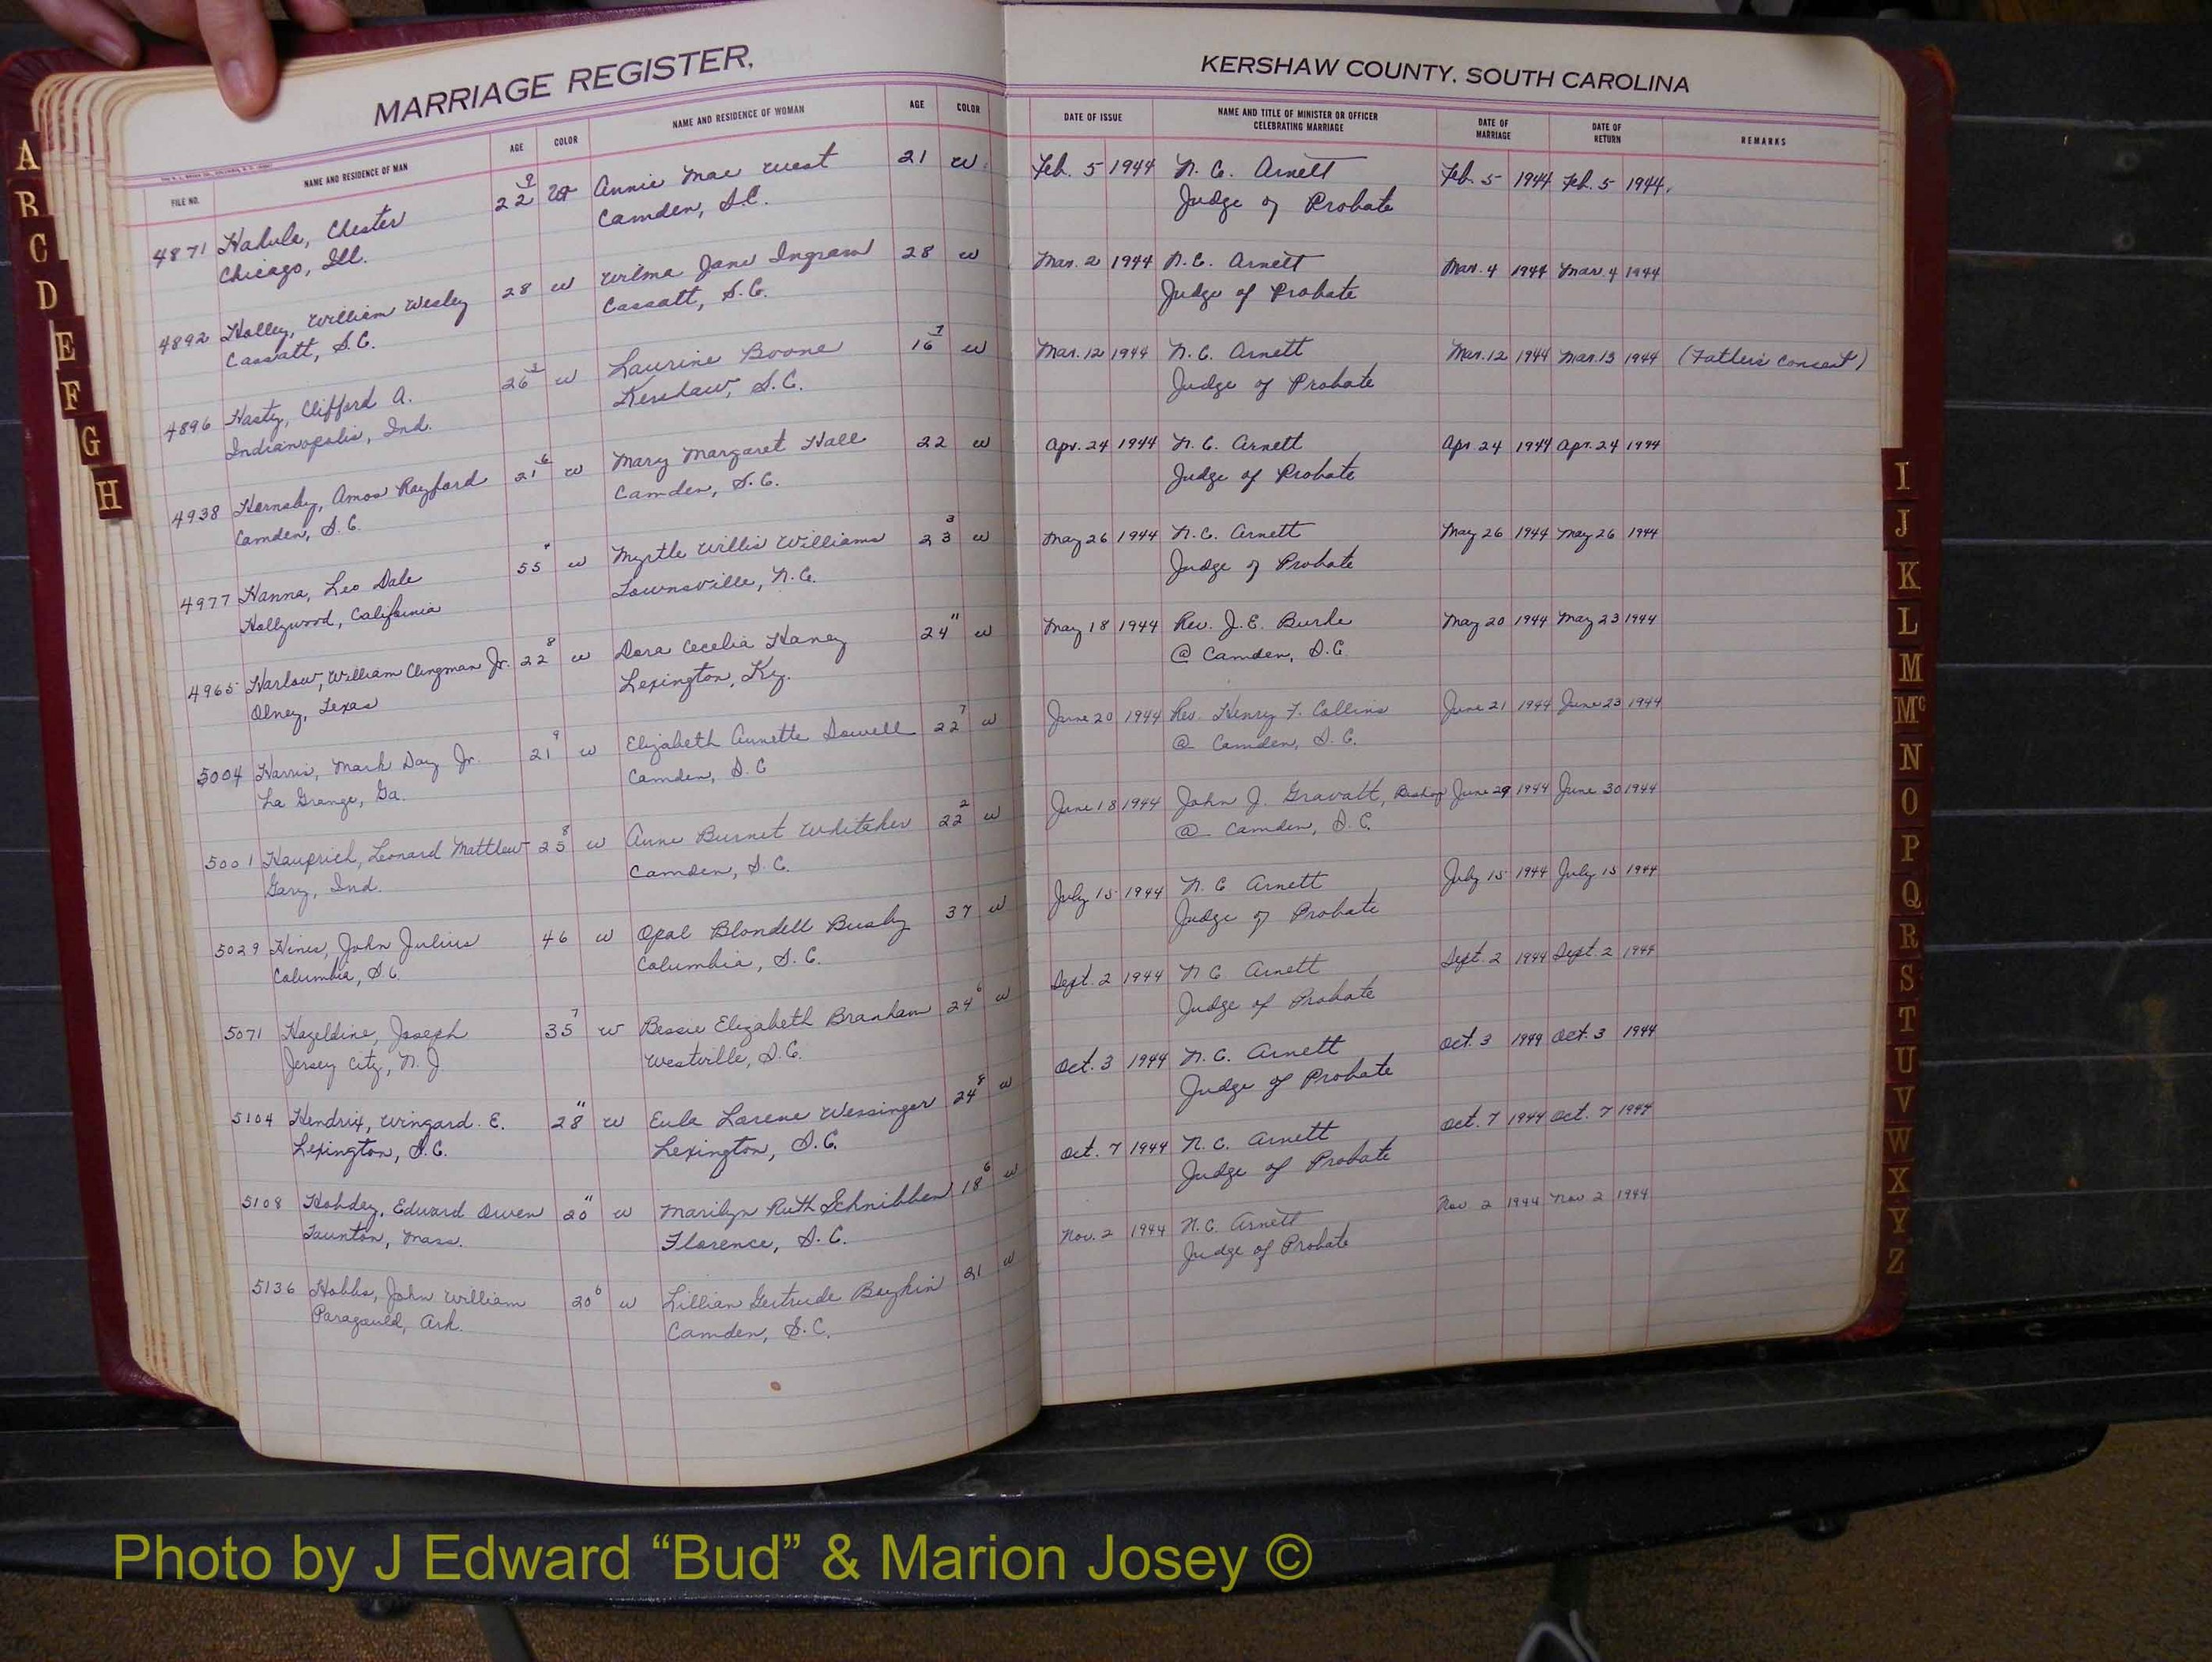 MARRIAGE REGISTER,
KERSHAW COUNTY, SOUTH CAROLINA
FILE NO. NAME AND RESIDENCE OF MAN AGE COLOR NAME AND RESIDENCE OF WOMAN AGE COLOR DATE OF ISSUE NAME AND TITLE OF MINISTER OR OFFICER CELEBRATING MARRIAGE DATE OF MARRIAGE DATE OF RETURN REMARKS
4871 Chester 22 9 w Annie Mae West 21 w Feb. 5 1944 N. C. Arnett Feb. 5 1944 Feb. 5 1944
Chicago, Ill. Camden, S.C. Judge of Probate
4892 Holley, William Wesley 28 w Wilma Jane Ingram 28 w Mar. 2 1944 N.C. Arnett Mar. 4 1944 Mar. 4 1944
Cassatt, S.C. Cassatt, S.C. Judge of Probate
4896 Hasty, Clifford A. 26 w Laurine Boone 16 w Mar. 12 1944 N. C. Arnett Mar. 12 1944 Mar. 13 1944 (Father's consent)
Indianapolis, Ind. Kershaw, S.C. Judge of Probate
4938 Hornsby, Amos Rayford 21 6 w Mary Margaret Hall 22 w Apr. 24 1944 N. C. Arnett Apr. 24 1944 Apr. 24 1944
Camden, S.C. Camden, S.C. Judge of Probate
4977 Hanna, Leo Dale 55 w Myrtle Willis Williams 23 3 w May 26 1944 N.C. Arnett May 26 1944 May 26 1944
Hollywood, California Townsville, N.C. Judge of Probate
4965 Harlow, William Clingman Jr. 22 8 w Dora Cecelia Haney 24 11 w May 18 1944 Rev. J.E. Burke May 20 1944 May 23 1944
Olney, Texas Lexington, Ky. @ Camden, S.C.
5004 Harris, Mark Day Jr. 21 9 w Elizabeth Annette Sowell 22 7 w June 20 1944 Rev. Henry F. Collins June 21 1944 June 23 1944
La Grange, Ga. Camden, S.C @ Camden, S.C.
5001 Hauprich, Leonard Matthew 25 8 w Anne Burnet Whitaker 22 2 w June 18 1944 John J. Gravatt, Bishop June 29 1944 June 30 1944
Gary, Ind. Camden, S.C. @ Camden, S.C.
5029 Hines, John Julius 46 w Opal Blondell Busby 37 w July 15 1944 N. C Arnett July 15 1944 July 15 1944
Columbia, S.C. Columbia, S.C. Judge of Probate
5071 Hazeldine, Joseph 35 7 w Bessie Elizabeth Branham 24 6 w Sept. 2 1944 N C Arnett Sept. 2 1944 Sept. 2 1944
Jersey City, N.J Westville, S.C. Judge of Probate
5104 Hendrix, Wingard E. 28 11 w Eula Larene Wessinger 24 8 w Oct. 3 1944 N. C. Arnett Oct. 3 1944 Oct. 3 1944
Lexington, S.C. Lexington, S.C. Judge of Probate
5108 Hobdey, Edward Owen 20 11 w Marilyn Ruth Schnibben 18 6 w Oct. 7 1944 N. C. Arnett Oct. 7 1944 Oct. 7 1944
Taunton, Mass. Florence, S.C. Judge of Probate
5136 Hobbs, John William 20 6 w Lillian Gertrude Boykin 21 w Nov. 2 1944 N.C. Arnett Nov 2 1944 Nov 2 1944
Paragould, Ark. Camden, S.C. Judge of Probate
A
B
C
D
E
F
G
H
I
J
K
L
M
Mc
N
O
P
Q
R
S
T
U
V
W
X
Y
Z
Photo by J Edward “Bud” & Marion Josey ©